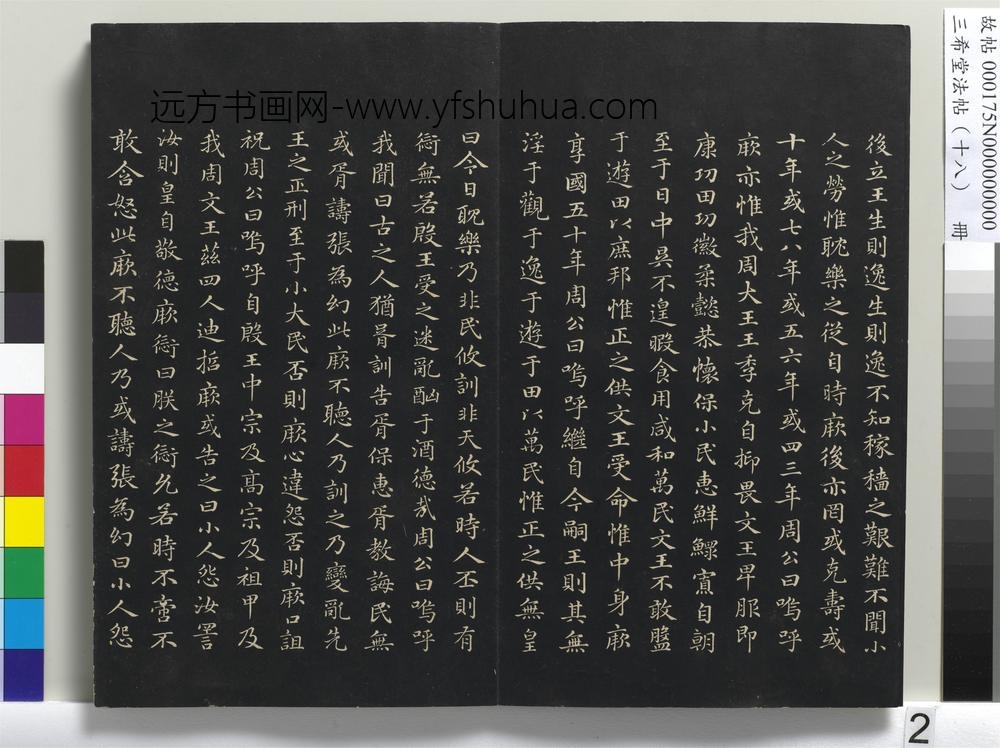 後立王生則逸生則逸不知稼穡之艱難不聞小
人之勞惟耽樂之從自時厥後亦罔或克壽或
十年或七八年或五六年或四三年周公曰嗚呼
厥亦惟我周大王王季克自抑畏文王卑服即
康功田功徽柔懿恭懷保小民惠鮮鰥寡自朝
至于日中昃不遑暇食用咸和萬民文王不敢盤
于遊田以庶邦惟正之供文王受命惟中身厥
享國五十年周公曰嗚呼繼自今嗣王則其無
淫于觀于逸于遊于田以萬民惟正之供無皇
曰今日耽樂乃非民攸訓非天攸若時人丕則有
愆無若殷王受之迷亂酗于酒德哉周公曰嗚呼
我聞曰古之人猶胥訓告胥保惠胥教誨民無
或胥譸張為幻此厥不聽人乃訓之乃變亂先
王之正刑至于小大民否則厥心違怨否則厥口詛
祝周公曰嗚呼自殷王中宗及高宗及祖甲及
我周文王茲四人迪哲厥或告之曰小人怨汝詈
汝則皇自敬德厥愆曰朕之愆允若時不啻不
敢含怒此厥不聽人乃或譸張為幻曰小人怨
远方书画网-www.yfshuhua.com
故帖 000175N000000000
三希堂法帖(十八) 冊
2